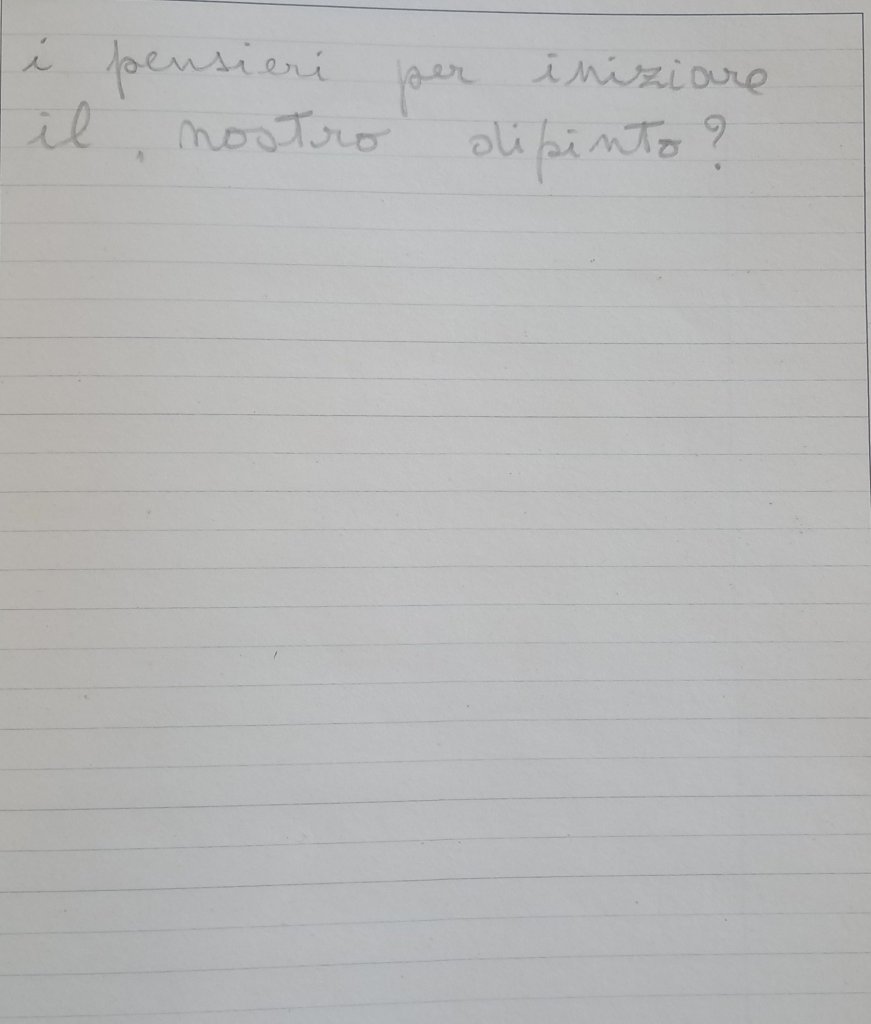 i pensieri per iniziare
il, nostro dipinto?